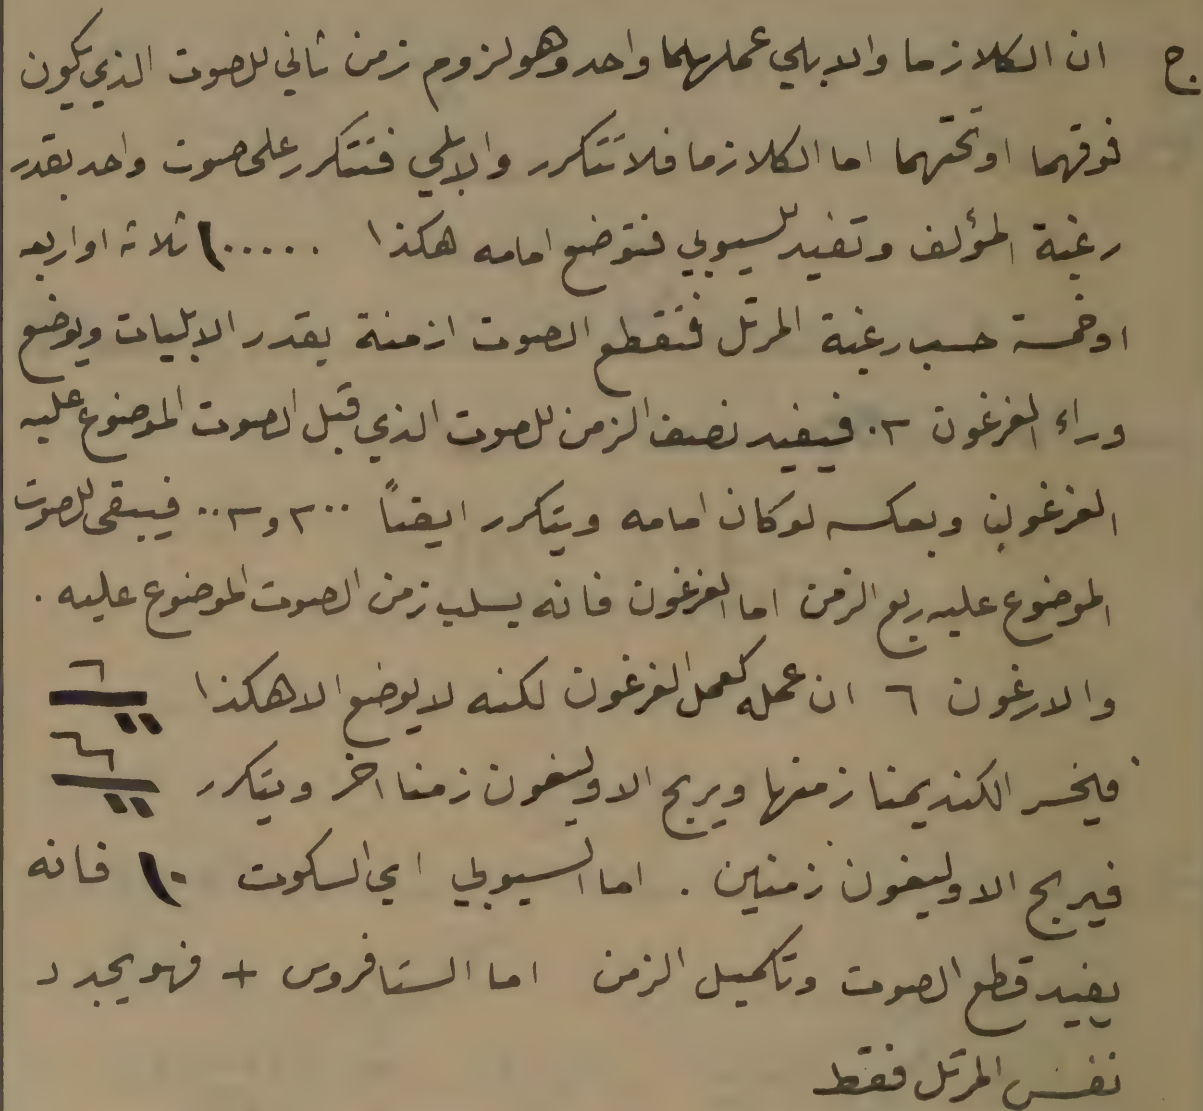 ج ان الكلازما والابلي عملهما واحد وهو لزوم زمن ثاني للصوت الذي يكون
فوقهما او تحتهما اما الكلازما فلا تتكرر والابلي فتتكرر على صوت واحد بقدر
رغبة المؤلف وتفيد للسيوبي فتوضع امامه هكذا ..... ثلاثه او اربعه
او خمسة حسب رغبة المرتل فتقطع الصوت ازمنة بقدر الابليات ويوضع
وراء الغرغون فيفيد نصف الزمن للصوت الذي قبل الصوت الموضوع عليه
الغرغون وبعكسه لو كان امامه ويتكرر ايضاً و فيبقى للصوت
الموضوع عليه ربع الزمن اما الغرغون فانه يسلب زمن الصوت الموضوع عليه .
والارغون ٦ ان عمله كعمل الغرغون لكنه لا يوضع الا هكذا
فيخسر الكنديما زمنها ويربح الاوليغون زمنا اخر ويتكرر
فيربح الاوليغون زمنين . اما السيوبي اي السكوت فانه
يفيد قطع الصوت وتكميل الزمن اما الستافروس + فهو يجدد
نفس المرتل فقط